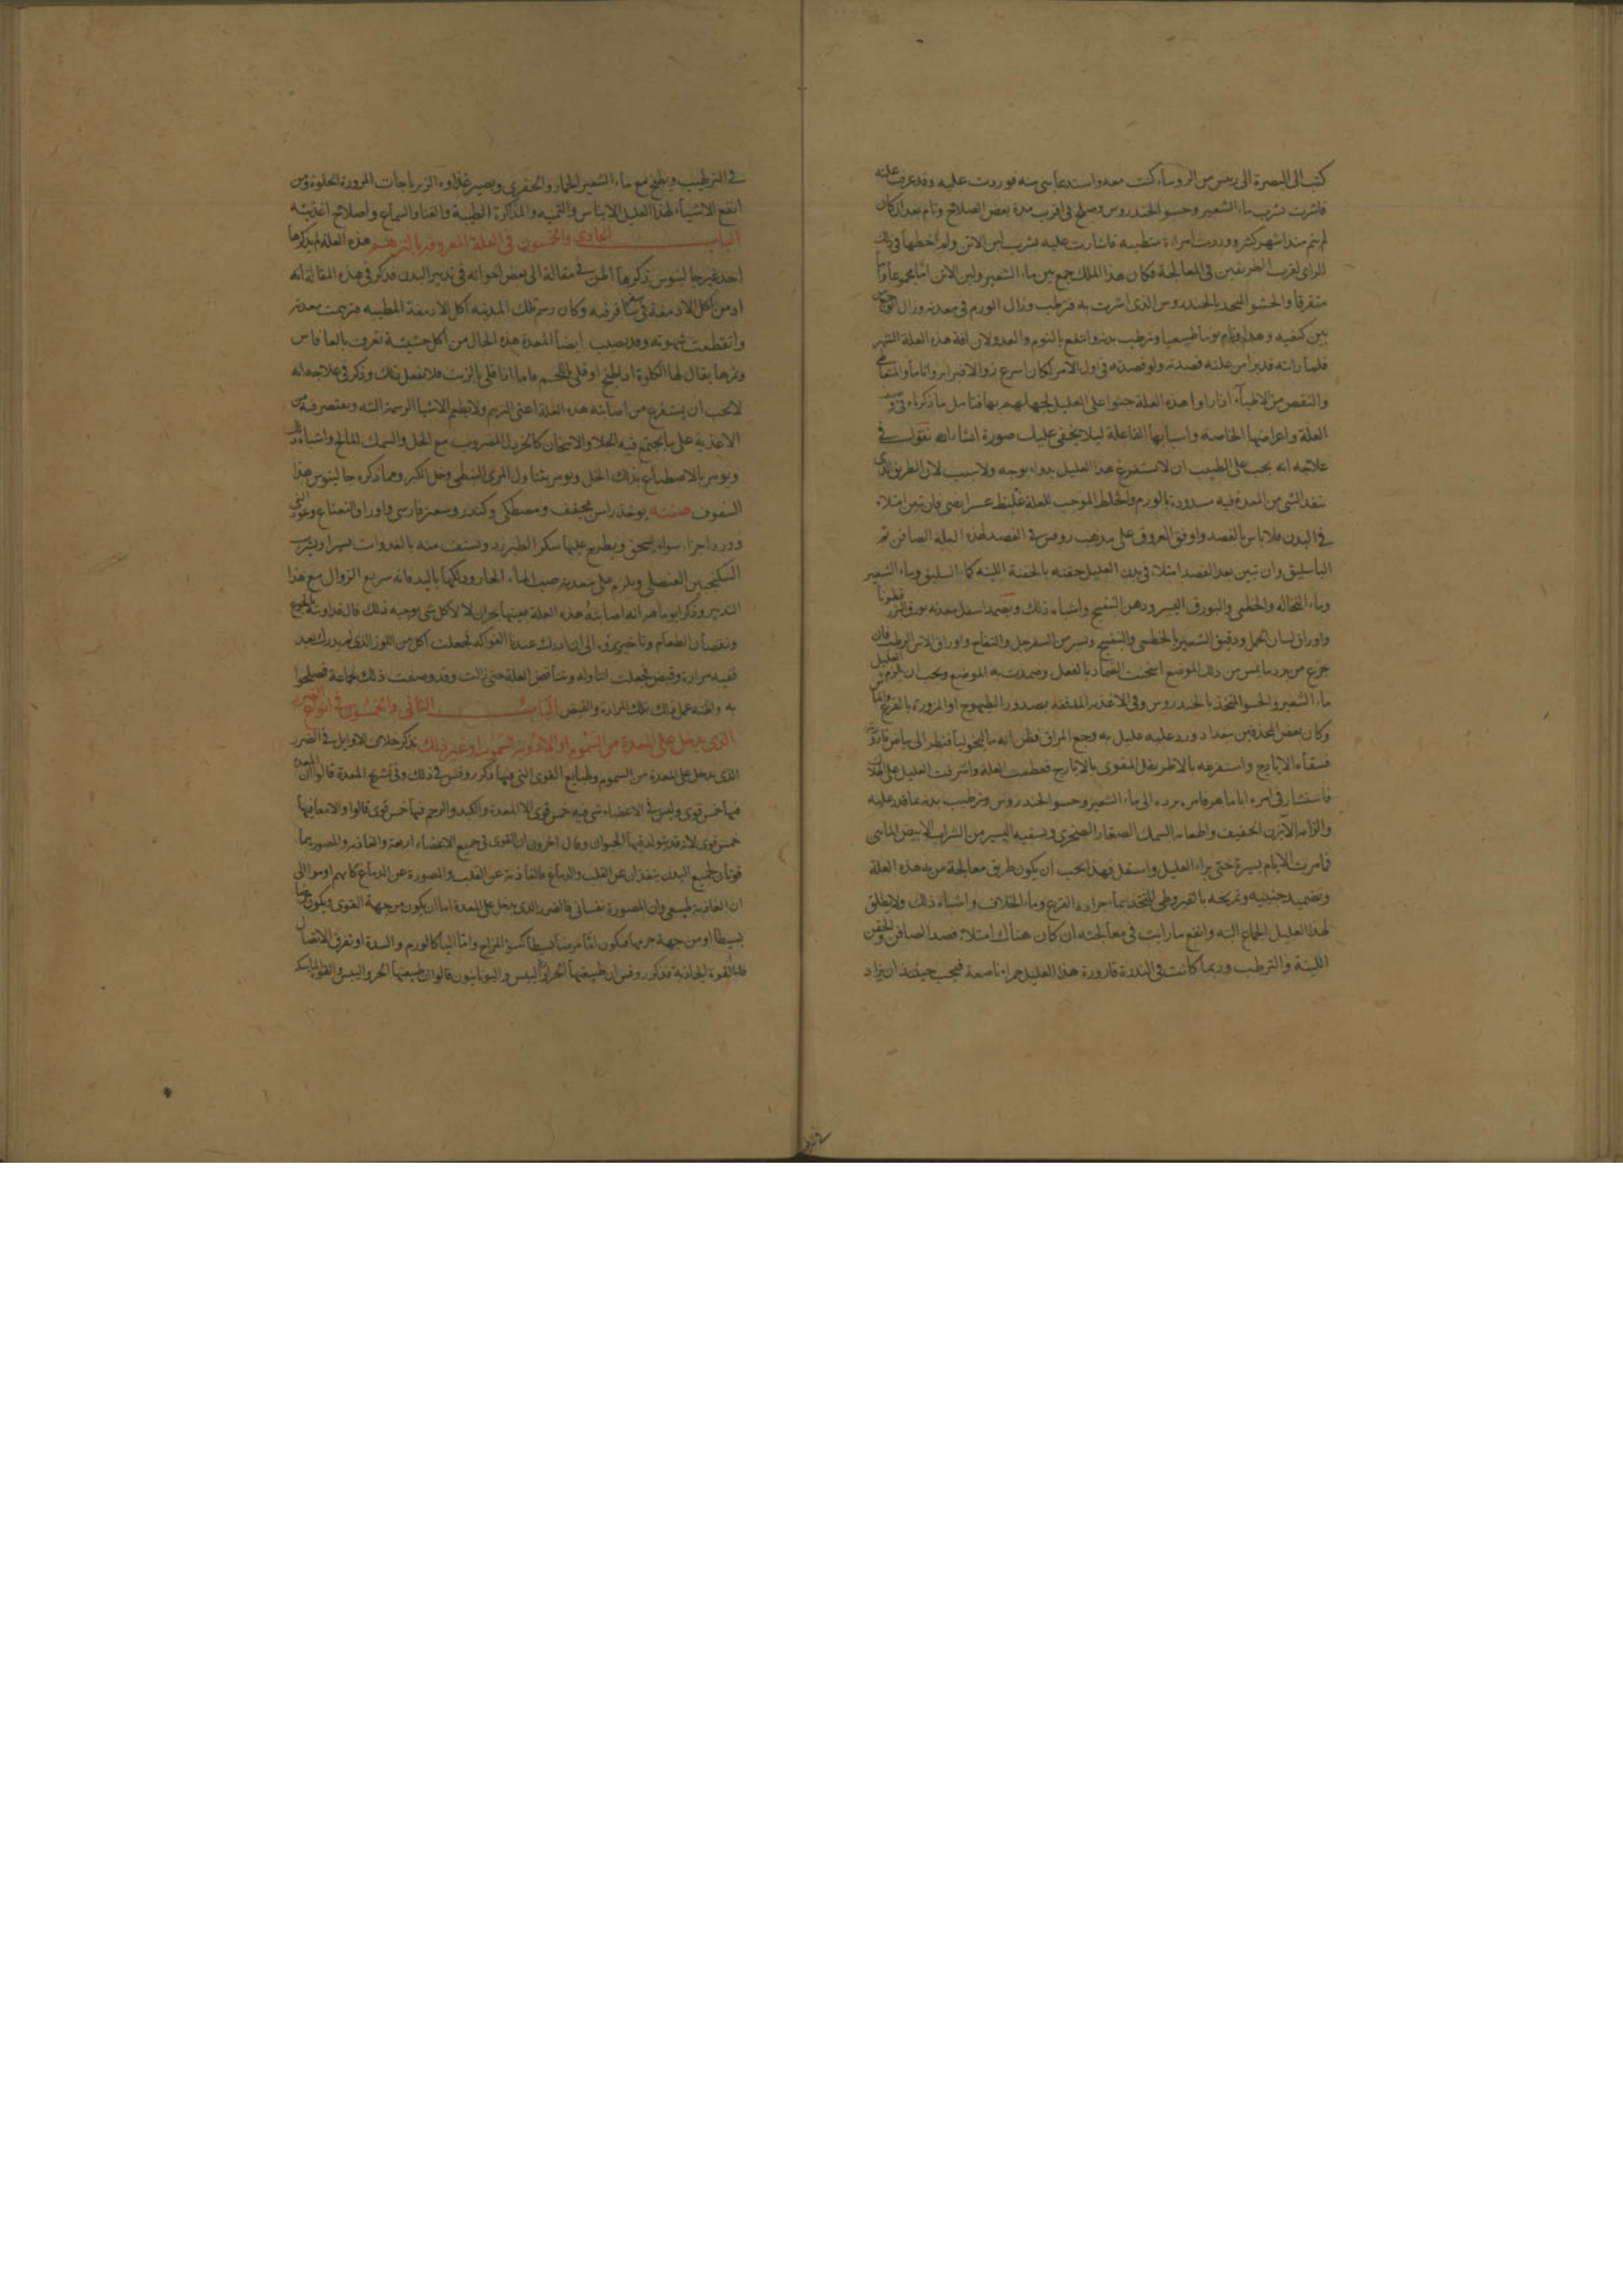 كتب الى البصرة الى رئيس من الروساء كنت معه واستدعانى منه فوردت عليه وقد عرف علته
فاشرت بشرب ماء الشعير وحسو الخندروس وصلح فى اقرب مدة بعض الصلاح ونام بعد ان كان
لم ينم منذ اشهر كثيرة ووردت امراءة متطببه فاشارت عليه بشرب لبن الاتن ولم اخطئها فى ذلك
الراى لقرب الطريقين فى المعالجة فكان هذا الملك جمع بين ماء الشعير ولبن الاتن اما مجموعا واما
متفرقا والحسو المتخذ بالخندروس الذى اشرت به فترطب وزال الورم فى معدته وزال الوجع
بين كتفيه وهدا ونام نوما طبيعيا وترطب بدنه وانتفع بالنوم والهدو لان افة هذه العلة السهر
فلما رايته قد برا من علته فصدته ولو فصدته فى اول الامر لكان اسرع
والنقص من الاطباء اذا راوا هذه العلة جنوا على العليل لجهلهم بها فتامل ما ذكرناه فى
العلة واعراضها الخاصة واسبابها الفاعلة ليلا يخفى عليك صورة انشاء الله نقول فى
علاجه انه يجب على الطبيب ان لا يستفرغ هذا العليل بدواء بوجه ولا سبب لان الطريق الذى
ينفذ الشى من المعدة فيه مسدودة بالورم والخلط الموجب للعلة غليظ عسر ارضى فان تبين امتلاء
فى البدن فلا باس بالفصد واوفق العروق على مذهب روفس فى الفصد لهذه العلة الصافن ثم
الباسليق وان تبين بعد الفصد امتلاء فى بدن العليل حقنه بالحقنة اللينة كماء السلق وماء الشعير
وماء النخاله والخطمى والبورق اليسير ودهن البنفسج واشباه ذلك ويضمد اسفل معدته بورق البزر قطونا
واوراق لسان الحمل ودقيق الشعير بالخطمى والبنفسج ويسير من السفرجل والتفاح واوراق الاس الرطب فان
جزع من برد ما يمس من ذلك الموضع اسخنت الضماد بالفعل وضمدت به الموضع ويجب ان يلزم العليل
ماء الشعير والحسو المتخذ بالخندروس وفى الاغذيه المدققه بصدور الطيهوج او المزورة بالقرع والماش
وكان بعض المحدثين ببغداد ورد عليه عليل به وجع المراق فظن انه ماليخوليا فنظر الى بياض قارورته
فسقاه الايارج واستفرغه بالاطريفل المقوى بالايارج فعظمت العلة واشرف العليل على الهلاك
فاستشار فى امره ابا ماهر فامره برده الى ماء الشعير وحسو الخندروس وترطيب بدنه بما قدر عليه
والزامه الابزن الخفيف واطعامه السمك الصغار الصخرى وبسقيه اليسير من الشراب الابيض المائى
فما مرت الا ايام يسيرة حتى براء العليل واستقل فهذا يجب ان يكون طريق معالجة من به هذه العلة
وتضميد جنبيه وتمريخه بالقيروطى المتخذ بماء جرادة القرع وماء الخلاف واشباه ذلك ولا يطلق
لهذا العليل الجماع البته وانفع ما رايت فى معالجته ان كان هناك امتلاء فصد الصافن والحقن
اللينة والترطيب وربما كانت فى الندرة قارورة هذا العليل حمراء ناصعة فيجب حينئذ ان يزاد
فى الترطيب ويطبخ مع ماء الشعير الخيار والجفرى ويصير غذاوه الزيرباجات المزورة الحلوة ومن
انفع الاشياء لهذا العليل الايناس والتنبيه والمذاكرة الطيبة والغناء والسماع واصلاح اغذيته
الباب الحادى والخمسون فى العلة المعروفه بالتزهم هذه العلة لم يذكرها
احد غير جالينوس ذكرها اظن فى مقالة الى بعض اخوانه فى تدبير البدن فذكر فى هذه المقالة انه
ادمن اكل الادمغة فى وكان رسم تلك المدينه اكل الادمغة المطيبه فتزهمت معدته
وانقطعت شهوته وقد يصيب ايضا المعدة هذه الحال من اكل حشيشة تعرف بالغافاس
وثمرها يقال لها الكلوة اذا طبخ او قلى باللحم فاما اذا قلى بالزيت فلا يفعل ذلك وذكر فى علاجه انه
لا يجب ان يستفرغ من اصابته هذه العلة اعنى التزهم ولا يطعم الاشيا الدسمة البته ويقتصر فيه من
الاغذية على ما يجتمع فيه الجلاء والاسخان كالخردل المضروب مع الخل والسمك المالح واشباه ذلك
ويومر بالاصطباغ بذلك الخل ويومر بتناول المرى النبطى وخل الكبر ومما ذكره جالينوس هذا
السفوف صفته يوخذ راسن مجفف ومصطكى وكندر وسعتر فارسى واوراق النعناع وعود النى
وورد اجزاء سواء يسحق ويطرح عليها سكر الطبرزد ويستف منه بالغدوات يسيرا ويشرب
السكنجبين العنصلى ويلزم على معدته صب الماء الحار ودلكها باليد فانه سريع الزوال مع هذا
التدبير وذكر ابو ماهر انه اصابته هذه العلة بعينها بحران لا لاكل شى يوجبه ذلك قال فداويته بالجوع
ونقصان الطعام وتاخيره الى ان ادرك عندنا الفواكه فجعلت اكل من اللوز الذى لم يدرك بعد
ففيه مرارة وقبض فجعلت اتناوله وتتناقص العلة حتى زالت وقد وصفت ذلك لجماعة فصلحوا
به واظنه عمل ذلك بتلك المرارة والقبض الباب الثانى والخمسون فى انواع الضرر
الذى يدخل على المعدة من السموم او الادوية السمومية او غير ذلك نذكر كلام الاوايل فى الضرر
الذى يدخل على المعدة من السموم وطبايع القوى التى فيها ذكر روفس فى ذلك وفى تشريح المعدة قالوا ان المعدة
فيها خمس قوى وليس فى الاعضاء شى فيه خمس قوى الا المعدة والكبد والرحم فيها خمس قوى قالوا والامعا فيها
خمس قوى لانه قد يتولد فيها الحيوان وقال اخرون ان القوى فى جميع الاعضاء اربعة والغاذية والمصورة هما
قوتان لجميع البدن ينفذان عن القلب والدماغ فالغاذية عن القلب والمصورة عن الدماغ كانهم اوموا الى
ان الغاذية طبيعى وان المصورة نفسانى فالضرر الذى يدخل على المعدة اما ان يكون من جهة القوى ويكون مرضا
بسيطا او من جهة جرمها فيكون اما مرضا بسيطا كسؤ المزاج واما اليا كالورم والسدة او تفرق الاتصال
فاما القوة الجاذبة فذكر روفس ان طبيعتها الحر واليبس واليونانيون قالوا ان طبيعتها الحر واليبس والقوة الماسكة